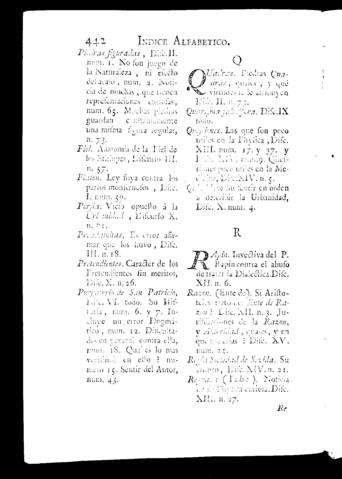 442 INDICE ALFABETICO.
Piedras figuradas, Disc. II.
num. 1. No son juego de
la Naturaleza, ni efecto
del acaso, num. 2. Noti-
cia de muchas, que tienen
representaciones
num. 65. Muchas piedras
guardan
una misma figura regular,
n. 73.
Piel. Anatomía de la Piel de
los Etiopes, Discurso III.
n. 57.
Platon. Ley suya contra los
partos monstruosos, Disc.
I. num. 59.
Vicio opuesto á la
Urbanidad, Discurso X.
n. 61.
Preadamitas. Es error afir-
mar que los huvo, Disc.
III. n. 18.
Pretendientes. Caracter de los
Pretendientes sin meritos,
Disc. X. n. 26.
Purgatorio de San Patricio,
Disc. VI. todo. Su His-
toria, num. 6. y 7. In-
cluye un error Dogma-
tico, num. 12. Dificulta-
des en general contra ella,
num. 18. Qual es lo mas
verisimil en ello? nu-
mero 15. Sentir del Autor,
num. 43.
Q
Quadras. Piedras Qua-
dras, quales, y qué
virtudes se le atribuyen
Disc. II. n. 73.
Disc. IX
todo.
Questiones. Las que son poco
utiles en la Physica, Disc.
XIII. num. 17. y 37. y
Disc. XIV. num. 9. Ques-
tiones poco utiles en la Me-
dicina, Disc. XIV. n. 5.
Su sentir en orden
a describir la Urbanidad,
Disc. X. num. 4.
R
Rapin. Invectiva del P.
Rapin contra el abuso
de tratar la Dialectica. Disc.
XII. n. 6.
Razon. (Ente de). Si Aristo-
teles trató del Ente de Ra-
zon? Disc. XII. n. 3. Ju-
risdicciones de la Razon,
y Autoridad, quales, y en
qué materias? Disc. XV.
num. 23.
Regia Sociedad de Sevilla. Su
Disc. XIV. n. 21.
(Padre). Noticia
Disc.
XIII. n. 27.
Re